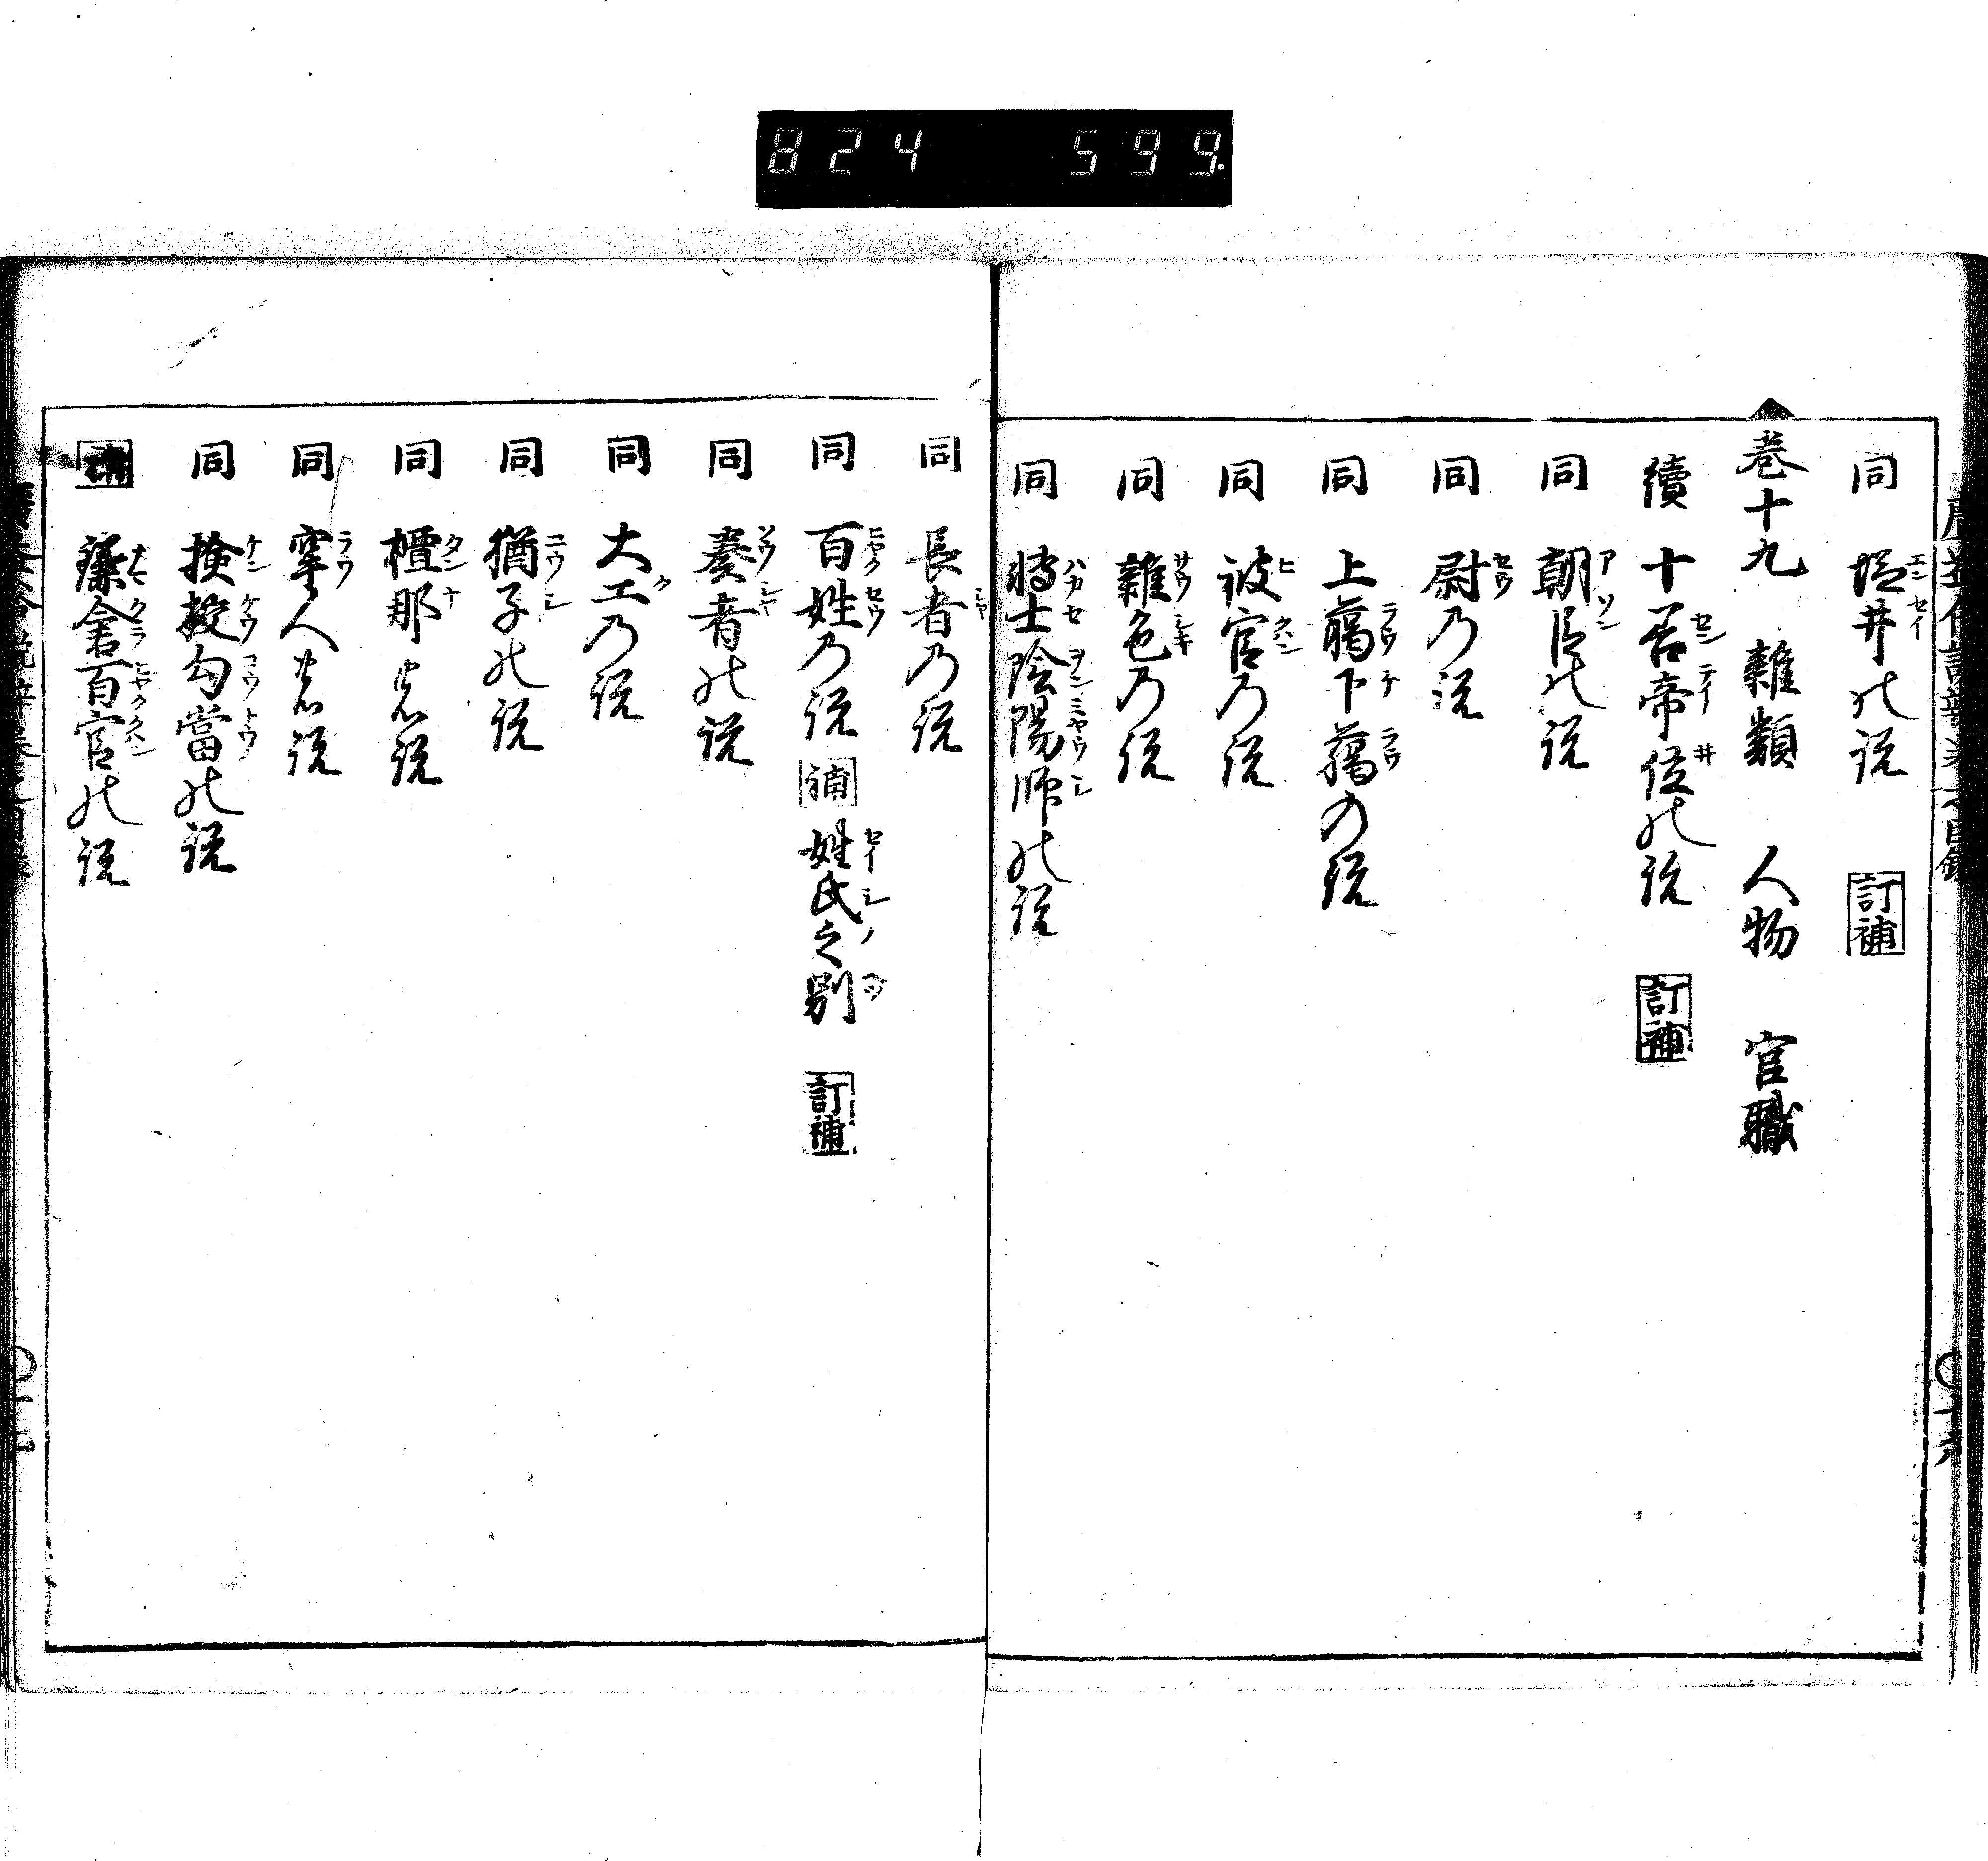 824 599.
同 塩井の説 訂補
巻十九 雜類 人物 官職
續 十善帝位の説 訂補
同 朝臣の説
同 尉乃説
同 上﨟下﨟の説
同 被官乃説
同 雜色乃説
同 博士陰陽師の説
同 長者乃説
同 百姓乃説 補 姓氏之別 訂補
同 奏者の説
同 大工乃説
同 猶子の説
同 檀那の説
同 牢人の説
同 撿挍勾當の説
補 鎌倉百官の説